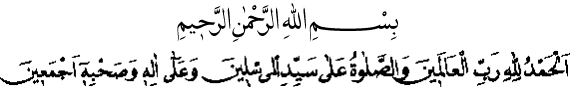 بِسْمِ اللهِ الرَّحْمٰنِ الرَّحِيمِ
اَلْحَمْدُ لِلّٰهِ رَبِّ الْعَالَمِينَ وَالصَّلٰوةُ عَلٰى سَيِّدِ الْمُرْسَلِينَ وَعَلٰى اٰلِهِ وَصَحْبِهِ اَجْمَعِينَ